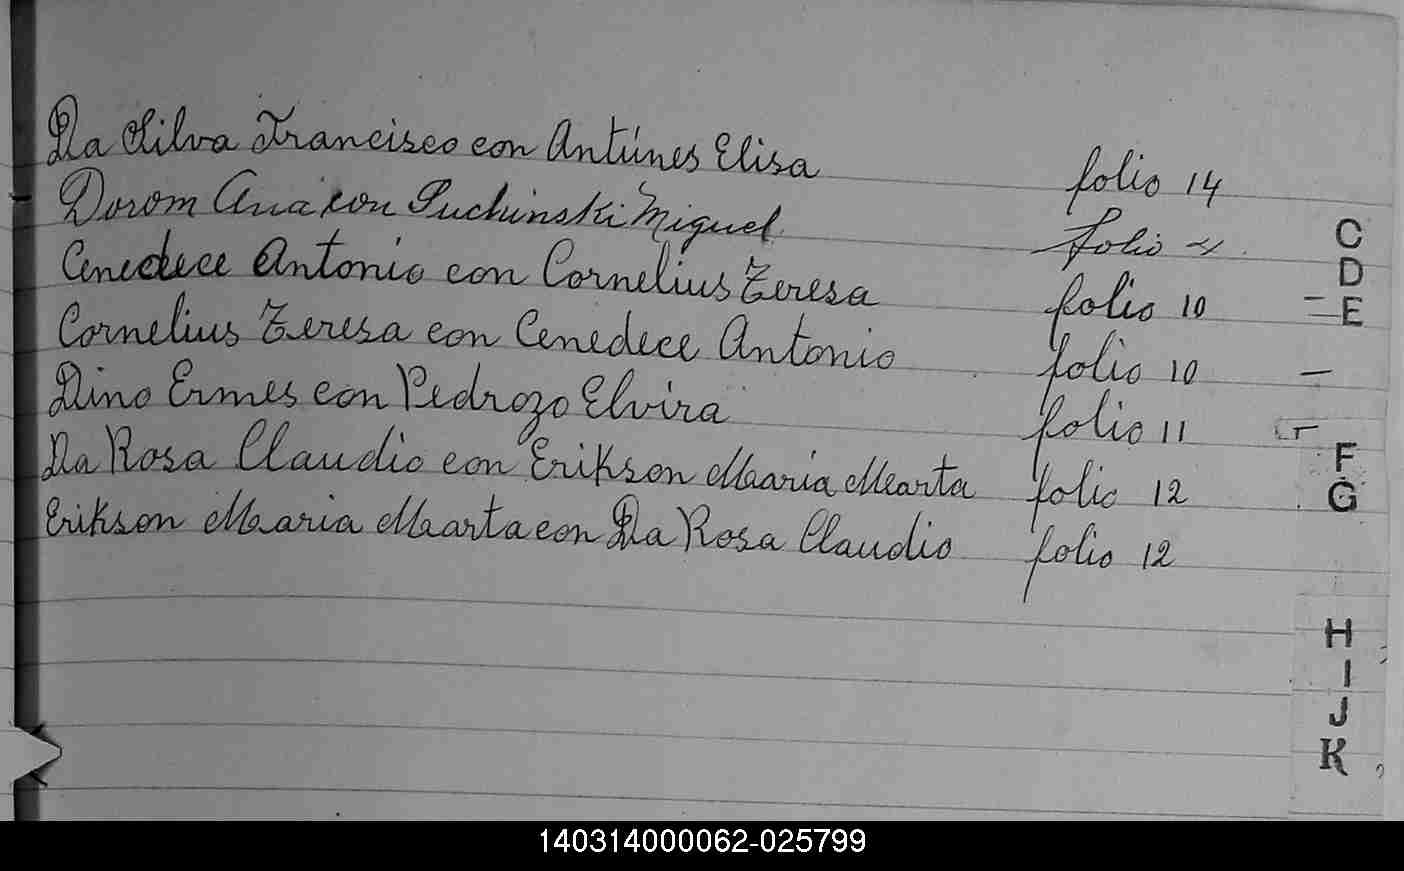 Da Silva Francisco con Antúnes Elisa folio 14
Dorom Ana con Puchinski Miguel folio
Cenedece Antonio con Cornelius Teresa folio 10
Cornelius Teresa con Cenedece Antonio folio 10
Dino Ermes con Pedrozo Elvira folio 11
Da Rosa Claudio con Erikson Maaria Mearta folio 12
Erikson Maaria Maarta con Da Rosa Claudio folio 12
C
D
E
F
G
H
I
J
K
140314000062-025799